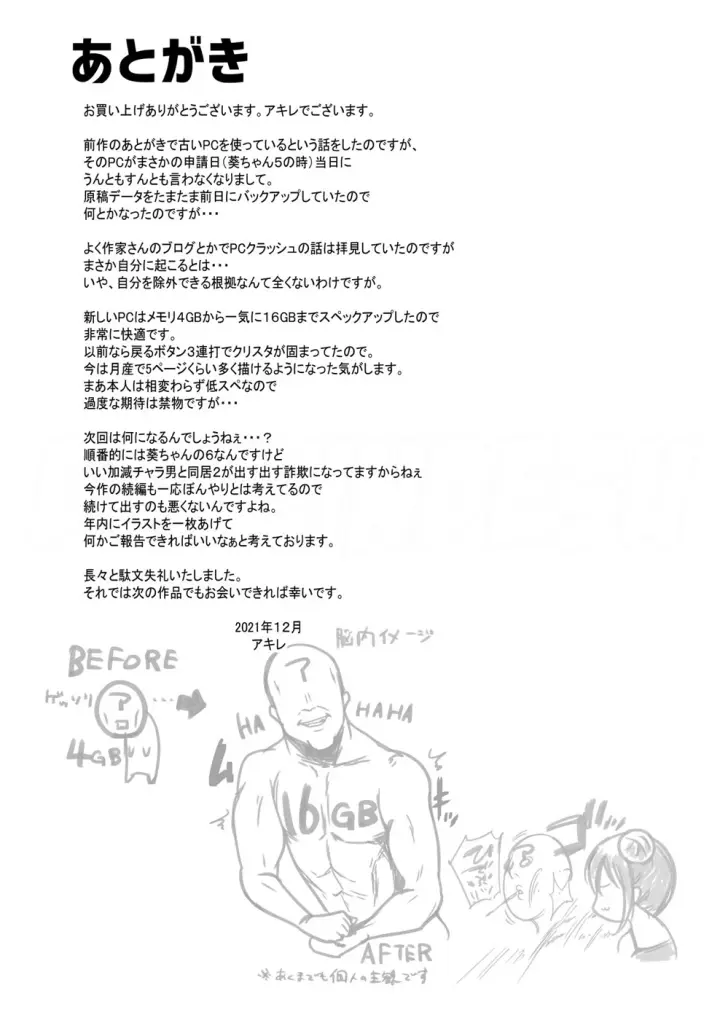 あとがき
お買い上げありがとうございます。アキレでございます。
前作のあとがきで古いPCを使っているという話をしたのですが、
そのPCがまさかの申請日（葵ちゃん５の時）当日に
うんともすんとも言わなくなりまして。
原稿データをたまたま前日にバックアップしていたので
何とかなったのですが・・・
よく作家さんのブログとかでPCクラッシュの話は拝見していたのですが
まさか自分に起こるとは・・・
いや、自分を除外できる根拠なんて全くないわけですが。
新しいPCはメモリ４GBから一気に１６GBまでスペックアップしたので
非常に快適です。
以前なら戻るボタン３連打でクリスタが固まってたので。
今は月産で5ページくらい多く描けるようになった気がします。
まあ本人は相変わらず低スペなので
過度な期待は禁物ですが・・・
次回は何になるんでしょうねぇ・・・？
順番的には葵ちゃんの６なんですけど
いい加減チャラ男と同居２が出す出す詐欺になってますからねぇ
今作の続編も一応ぼんやりとは考えてるので
続けて出すのも悪くないんですよね。
年内にイラストを一枚あげて
何かご報告できればいいなぁと考えております。
長々と駄文失礼いたしました。
それでは次の作品でもお会いできれば幸いです。
2021年１２月
アキレ
脳内イメージ
BEFORE
ゲッソリ
ア
4GB
...
ア
HA
HAHA
ム
キッ
16GB
AFTER
※あくまでも個人の主観です